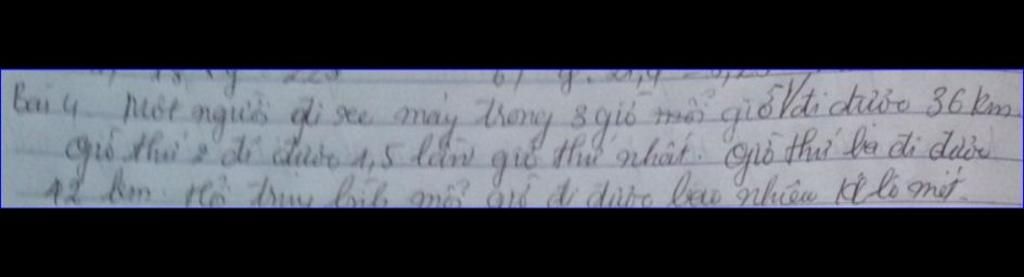 Bài 4 Một người đi xe máy trong 3 giờ mỗi giờ 1 đi được 36 km
giờ thứ 2 đi được 1,5 lần giờ thứ nhất. Giờ thứ ba đi được
42 km. Hỏi trung bình mỗi giờ đi được bao nhiêu ki lô mét.